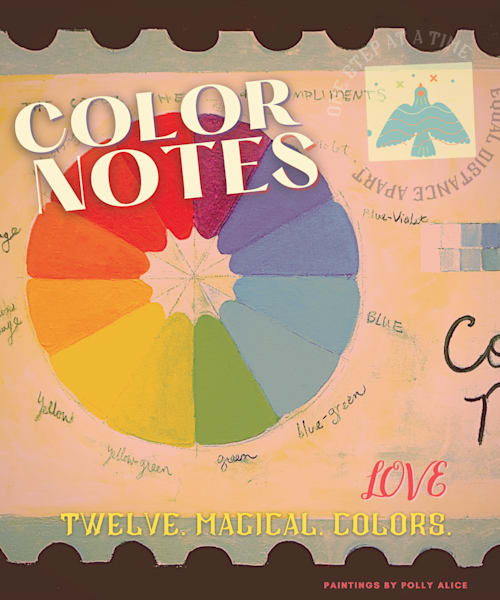 COLOR
NOTES
ONE STEP AT A TIME
EQUAL DISTANCE APART
THE
COMPLIMENTS
Violet
Blue-Violet
BLUE
blue-green
green
yellow-green
Yellow
Co
LOVE
TWELVE. MAGICAL. COLORS.
PAINTINGS BY POLLY ALICE